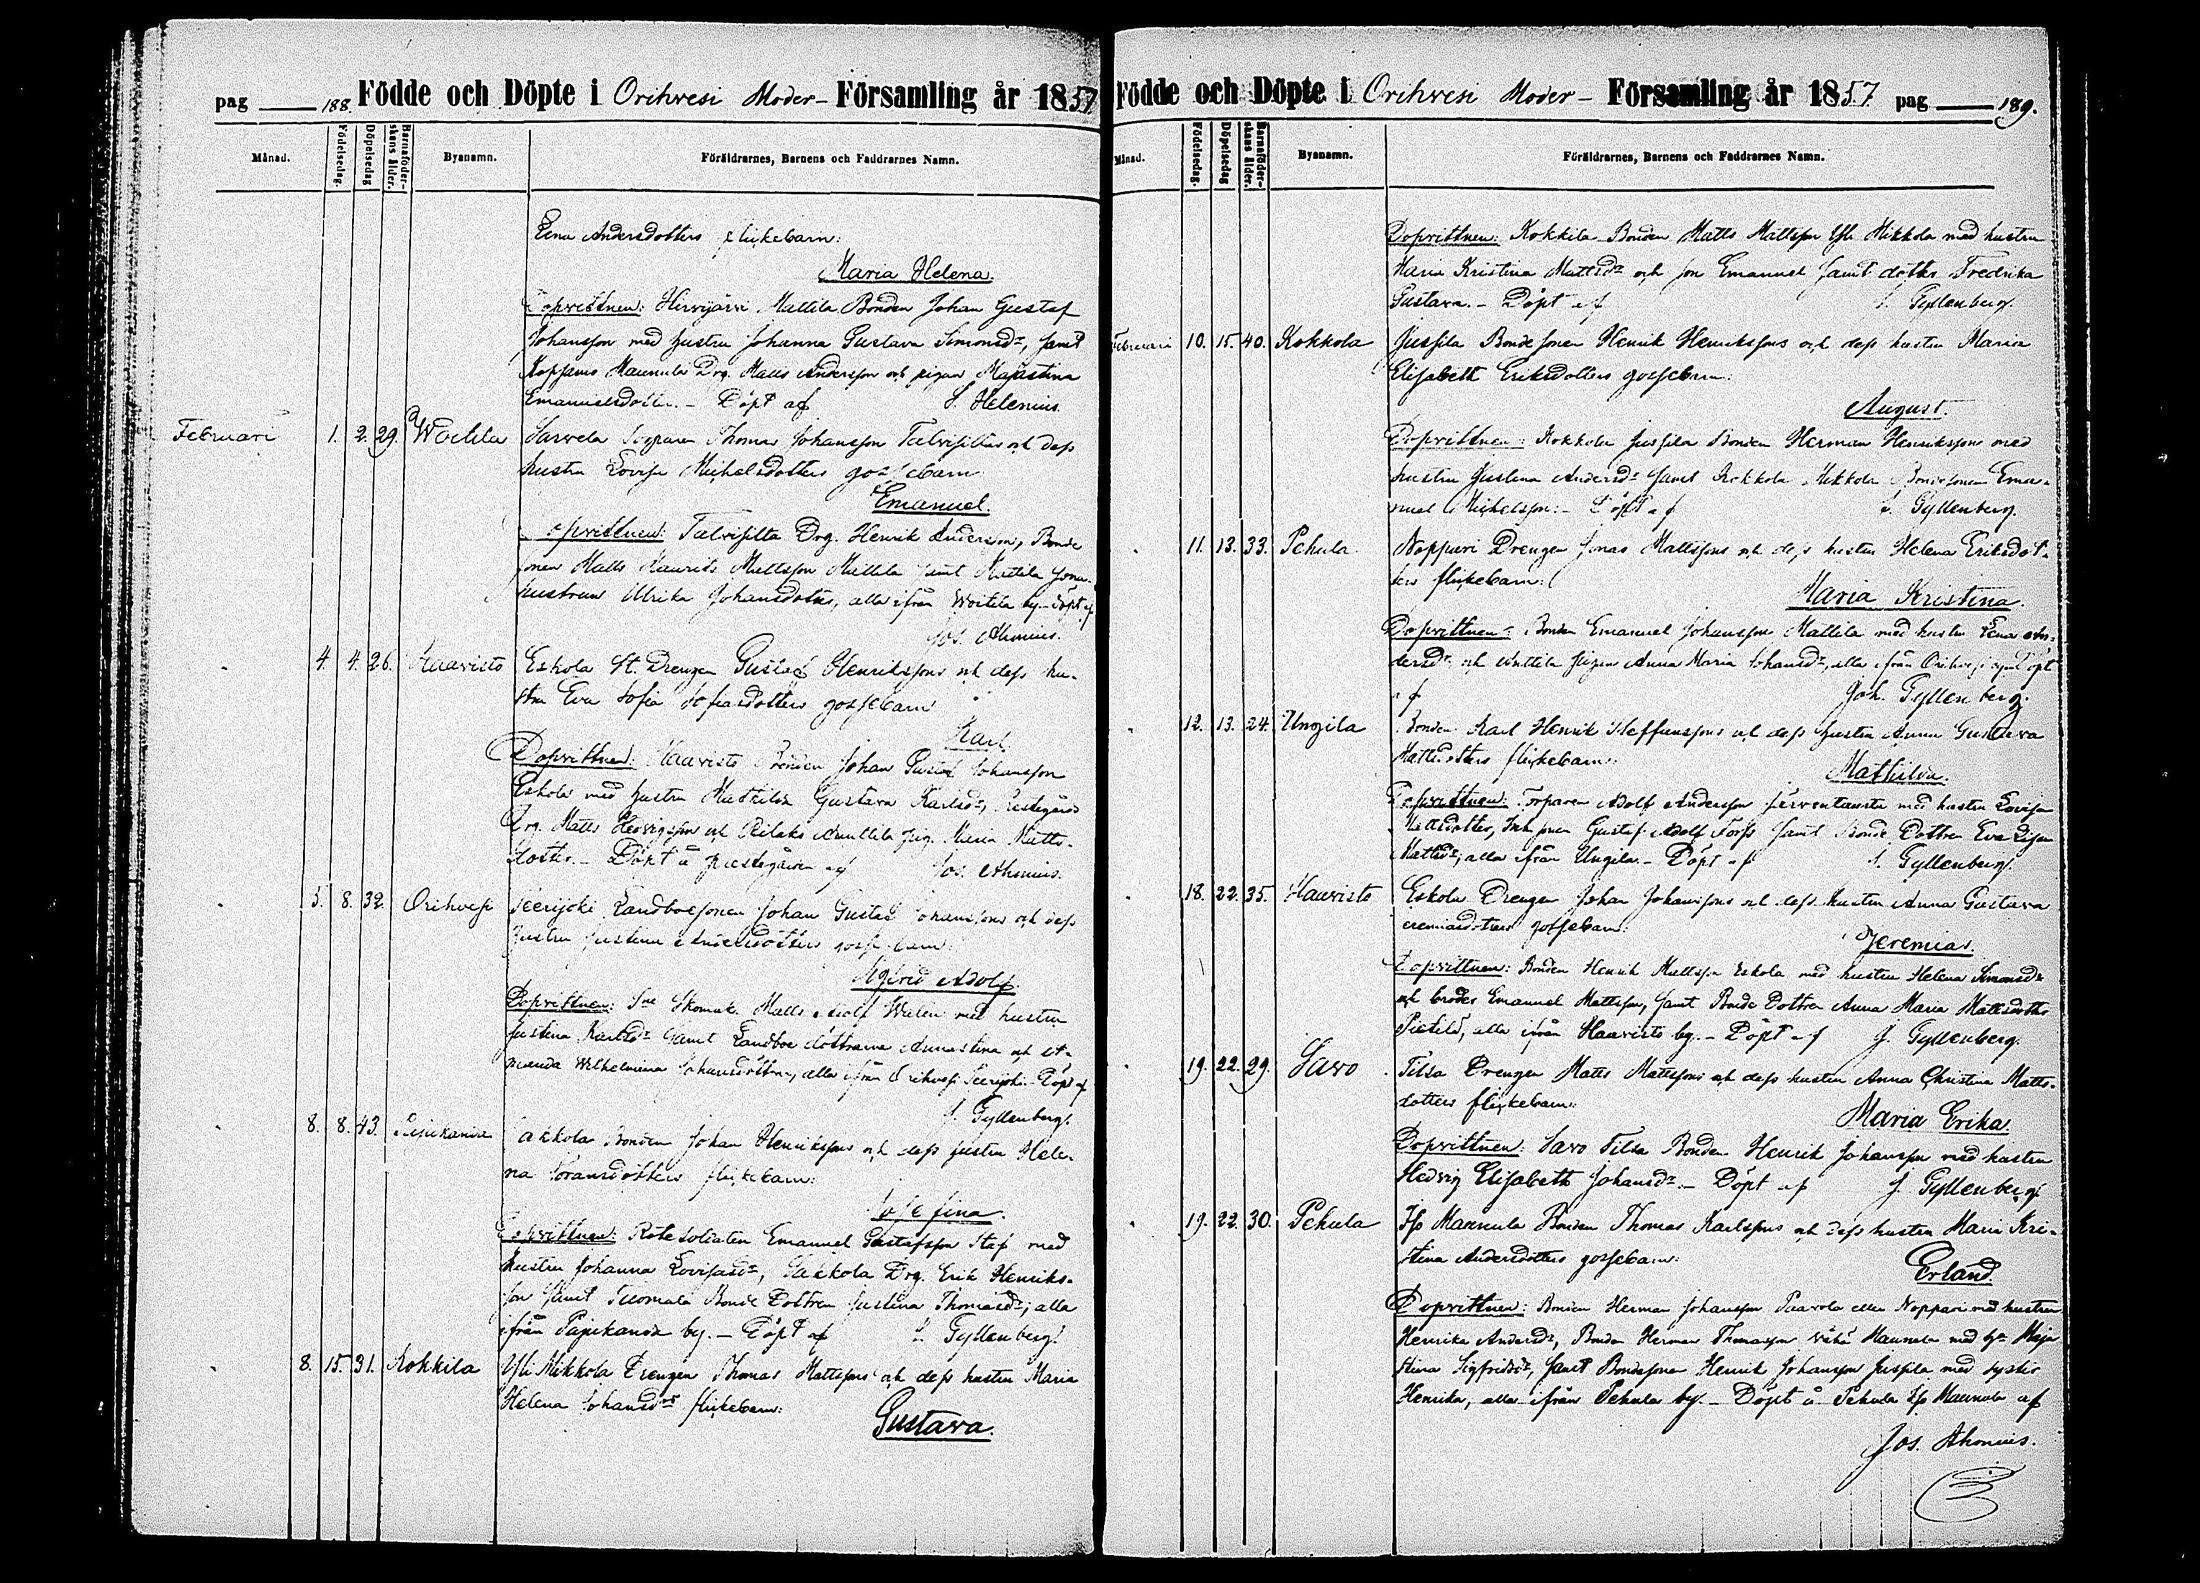 pag 188. Födde och Döpte i Orihvesi Moder- Församling år 1857
Månad. Födelsedag. Döpelsedag Barnaföderskans ålder. Byanamn. Föräldrarnes, Barnens och Faddrarnes Namn.
Lena Andersdotters flickebarn:
Maria Helena.
Dopvittnen: Hirvijärvi Mattila Bonden Johan Gustaf
Johansson med hustru Johanna Gustava Simonsdr, samt
Mannula Drg. Matts Andersson och pigan Majastina
Emanuelsdotter. - Döpt af S. Helenius.
Februari 1. 2. 29. Woitila Sarvela Torparen Thomas Johansson Talvisilta och dess
hustru Lovisa Michelsdotters gossebarn
Emanuel.
Dopvittnen: Talvisilta Drg. Henrik Andersson, Bonde
sonen Matts Mauritz Mattsson Mattila samt Mattila
hustrun Ulrika Johansdotter, alla ifrån Woitila by. - Döpt af
Jos. Ahonius.
4. 4. 26. Haavisto Eskola St. Drengen Gustaf Henrikssons och dess hu-
stru Eva Sofia Sofiasdotters gossebarn
Karl.
Dopvittnen: Haavisto Bonden Johan Gustaf Johansson
Eskola med hustru Mathilda Gustava Karlsdr, Prestegårds
Drg. Matts Hedvigsson och Anttila pig. Maria Matts-
dotter. - Döpt å prestegården af Jos. Ahonius.
5. 8. 32. Orihvesi Teerijoki Landboesonen Johan Gustaf Johanssons och dess
hustru Justina Andersdotters gossebarn:
Sigfrid Adolf.
Dopvittnen: Skomak. Matts Adolf Walen med hustru
Justina Karlsdr samt Landboe döttrarne Annastina och A-
manda Wilhelmina Johansdöttrar, alla ifrån Orihvesi Teerijoki. - Döpt af
J. Gyllenberg.
8. 8. 43. Pajukanda Sakkola Bonden Johan Henrikssons och dess hustru Hele-
na Göransdotters flickebarn:
Josefina.
Dopvittnen: Rotesoldaten Emanuel Gustafsson Staf med
hustru Johanna Lovisasdr, Sakkola Drg. Erik Henriks-
son samt Tuomala Bonde Dottren Justina Thomasdr; alla
ifrån Pajukanda by. - Döpt af J. Gyllenberg.
8. 15. 31. Kokkila Yli Mikkola Drengen Thomas Mattssons och dess hustru Maria
Helena Johansdrs flickebarn:
Gustava.
Födde och Döpte i Orihvesi Moder- Församling år 1857 pag 189.
Månad. Födelsedag. Döpelsedag Barnaföderskans ålder. Byanamn. Föräldrarnes, Barnens och Faddrarnes Namn.
Dopvittnen: Kokkila Bonden Matts Mattsson Yli Mikkola med hustru
Maria Kristina Mattsdr och son Emanuel samt dotter Fredrika
Gustava. - Döpt af J. Gyllenberg.
Februari 10. 15. 40. Kokkola Jussila Bondesonen Henrik Henrikssons och dess hustru Maria
Elisabeth Eriksdotters gossebarn:
August.
Dopvittnen: Kokkola Jussila Bonden Herman Henriksson med
hustru Justina Andersdr samt Kokkola Mikkola Bondesonen Ema-
nuel Michelsson: - Döpt af J. Gyllenberg.
11. 13. 33. Pehula Noppari Drengen Jonas Mattssons och dess hustru Helena Eriksdot-
ters flickebarn:
Maria Kristina.
Dopvittnen: Bonden Emanuel Johansson Mattila med hustru Lena An-
dersdr och Anttila pigan Anna Maria Johansdr, alla ifrån Orihvesi by. Döpt
af Joh. Gyllenberg.
12. 13. 24. Ungila Bonden Karl Henrik Steffanssons och dess hustru Anna Gustava
Mattsdotters flickebarn:
Mathilda.
Dopvittnen: Torparen Adolf Andersson Järventausta med hustru Lovisa
Mattsdotter, Gustaf Adolf Fors samt Bonde Dottren Eva Lisa
Mattsdr; alla ifrån Ungila. - Döpt af J. Gyllenberg.
18. 22. 35. Haavisto Eskola Drengen Johan Johanssons och dess hustru Anna Gustava
Jeremiasdotters gossebarn:
Jeremias.
Dopvittnen: Bonden Henrik Mattsson Eskola med hustru Helena Simonsdr
och broder Emanuel Mattsson, samt Bonde Dottren Anna Maria Mattsdotter
Pietilä, alla ifrån Haavisto by. - Döpt af J. Gyllenberg.
19. 22. 29. Savo Tilsa Drengen Matts Mattssons och dess hustru Anna Christina Matts-
dotters flickebarn:
Maria Erika.
Dopvittnen: Savo Tilsa Bonden Henrik Johansson med hustru
Hedvig Elisabeth Johansdr. - Döpt af J. Gyllenberg.
19. 22. 30. Pehula Iso Mannula Bonden Thomas Karlssons och dess hustru Maria Kri-
stina Andersdotters gossebarn:
Erland.
Dopvittnen: Bonden Herman Johansson Paavola eller Noppari med hustru
Henrika Andersdr, Bonden Herman Thomasson Vähä Mannula med hu Maja
stina Sigfridsdr, samt Bondesonen Henrik Johansson Jussila med syster
Henrika, alla ifrån Pehula by. - Döpt å Pehula Iso Mannula af
Jos. Ahonius.